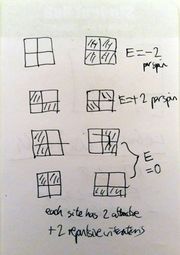 E=-2
per spin
E=+2 per spin
E
=0
each site has 2 attractive
+2 repulsive interations